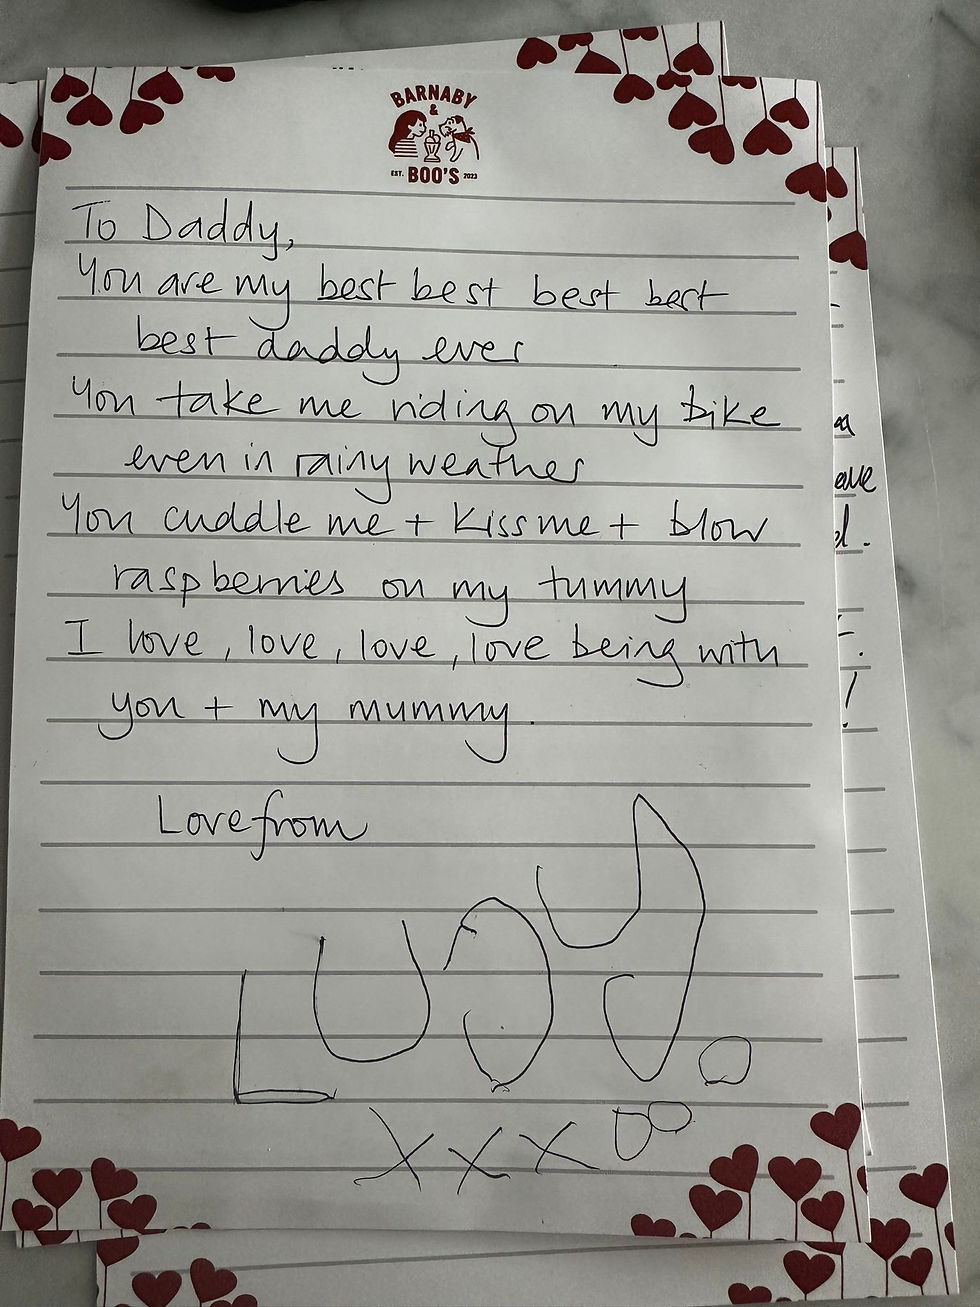 BARNABY
&
EST. BOO'S 2023
To Daddy,
You are my best best best best
best daddy ever
You take me riding on my bike
even in rainy weather
You cuddle me + kiss me + blow
raspberries on my tummy
I love, love, love, love being with
you + my mummy.
Love from
LUCY
xxx